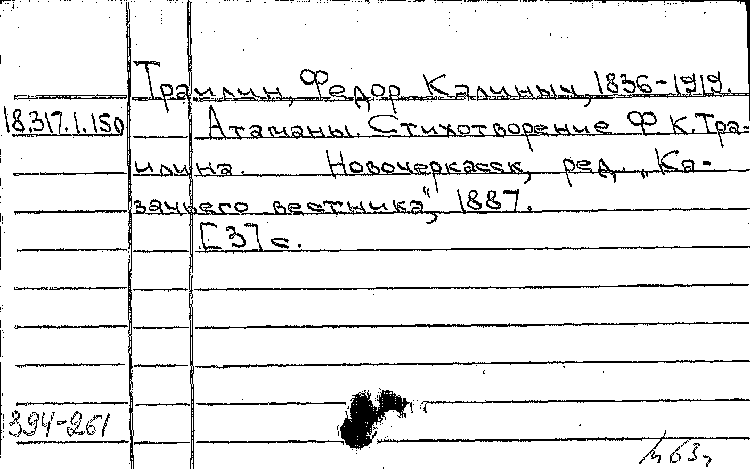 Траилин, Федор Калиныч, 1836-1919.
18.317.1.150 Атаманы. Стихотворение Ф.К.Тра-
илина. Новочеркасск, ред. „Ка-
зачьего вестника", 1887.
[3] с.
394-261